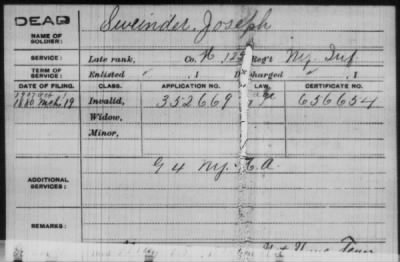 DEAD
Sweinder, Joseph
NAME OF SOLDIER:
SERVICE: Late rank, Co. H 129 Reg't Ny. Inf
TERM OF SERVICE: Enlisted , 1 Discharged , 1
DATE OF FILING. CLASS. APPLICATION NO. LAW. CERTIFICATE NO.
1880 Mch 19 Invalid, 352669 656654
Widow,
Minor,
ADDITIONAL SERVICES: G 4 Ny. A
REMARKS: